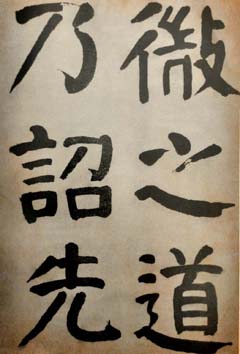 微之道
乃詔先